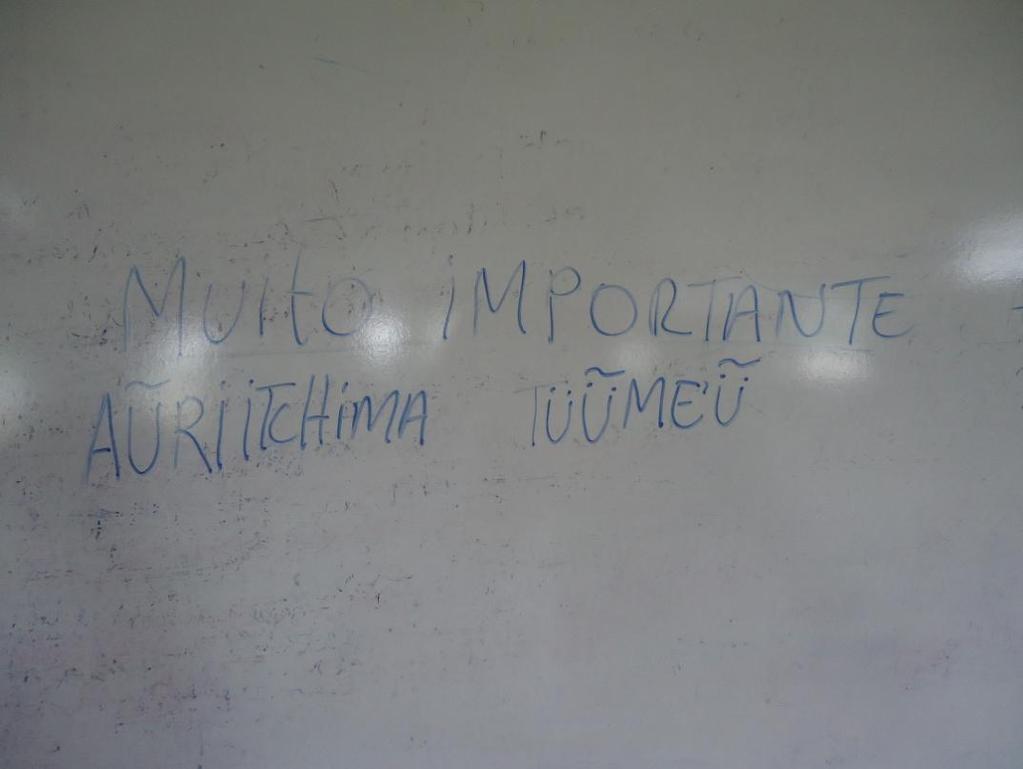 MUITO IMPORTANTE
AŨRIITCHIMA TÜÜ̃ME'Ü̃